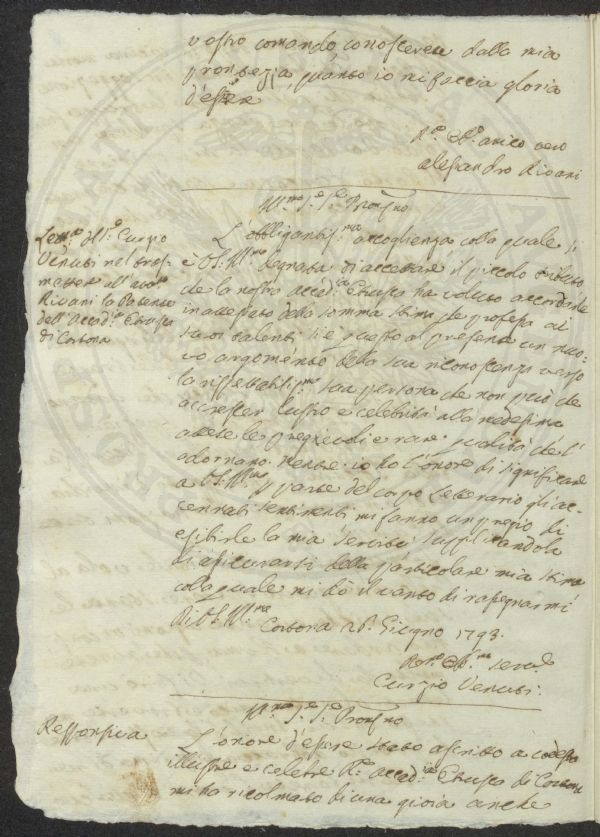 vostro comando, conoscerete dalla mia
prontezza, quanto io mi faccia gloria
d'essere
amico vero
Alessandro Rivani
Ill.mo S.e S.e Pron
Lett.a del S.e Curzio
Venuti nel tras=
metter all'avv.
Rivani la Patente
dell'Accad.a Etrusca
di Cortona
L'obbligantis.ma accoglienza colla quale si
è V.S. Ill.ma degnata di accettare il piccolo tributo
che la nostra Accad.ia Etrusca ha voluto accordarle
in attestato della somma stima che professa ai
suoi talenti si è questo al presente un nuo=
vo argomento della sua riconoscenza verso
la rispettabilis.ma sua persona che non può che
accrescer lustro e celebrità alla medesima
attese le pregievoli e rare qualità che l'
adornano. Mentre io ho l'onore di significare
a V.S. Ill.ma p parte del corpo Letterario gli ac=
cennati sentimenti mi fanno un pregio di
esibirle la mia servitù supplicandola
di assicurarsi della particolare mia stima
colla quale mi dò il vanto di rassegnarmi
Di V.S. Ill.ma
Cortona Giugno 1793.
Curzio Venuti.
Ill.mo S.e S.e Pron
Responsiva
L'onore d'essere stato ascritto a codesta
illustre e celebre accad.ia Etrusca di Cortona
mi ha ricolmato di una gioia anche